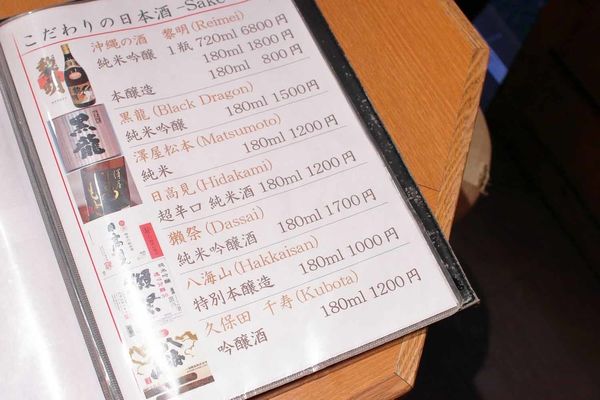 こだわりの日本酒 -Sake
沖縄の酒 黎明(Reimei)
純米吟醸 1瓶 720ml 6800円
180ml 1800円
本醸造 180ml 800円
黒龍(Black Dragon)
純米吟醸 180ml 1500円
澤屋松本(Matsumoto)
純米 180ml 1200円
日高見(Hidakami)
超辛口 純米酒 180ml 1200円
獺祭(Dassai)
純米吟醸酒 180ml 1700円
八海山(Hakkaisan)
特別本醸造 180ml 1000円
久保田 千寿(Kubota)
吟醸酒 180ml 1200円
黒龍
日高見
獺祭